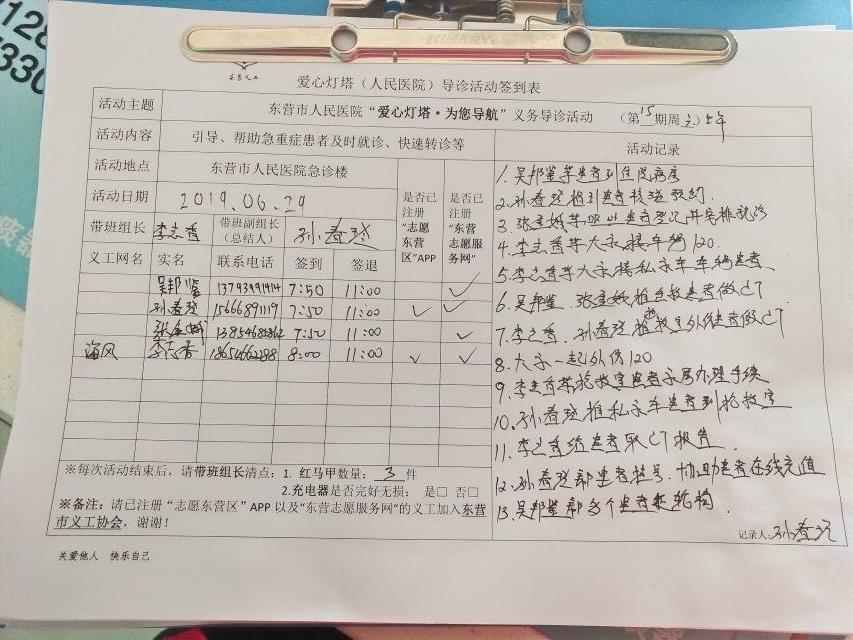 东营义工
爱心灯塔（人民医院）导诊活动签到表
活动主题 东营市人民医院“爱心灯塔·为您导航”义务导诊活动 （第15期周六）上午
活动内容 引导、帮助急重症患者及时就诊、快速转诊等
活动地点 东营市人民医院急诊楼
活动日期 2019.06.29
带班组长 李志香 带班副组长（总结人） 孙春玲
是否已注册“志愿东营区”APP
是否已注册“东营志愿服务网”
义工网名 实名 联系电话 签到 签退
吴邦鉴 13793991414 7:50 11:00 ✓
孙春玲 15666891119 7:50 11:00 ✓ ✓
7:50 11:00 ✓
海风 李志香 8:00 11:00 ✓ ✓
※每次活动结束后，请带班组长清点：1. 红马甲数量： 3 件
2.充电器是否完好无损： 是□ 否□
※备注：请已注册“志愿东营区”APP 以及“东营志愿服务网”的义工加入东营
市义工协会，谢谢！
活动记录
1. 吴邦鉴带患者到住院病房
2. 孙春玲指引患者核磁预约.
3.
4. 李志香等大家接车辆120.
5. 李志香等大家接私家车车辆患者
6. 吴邦鉴. 推急救患者做CT
7. 李志香. 孙春玲推抢救室外伤患者做CT
8. 大家一起外伤120
9. 李志香帮抢救室患者家属办理手续
10. 孙春玲推私家车患者到抢救室
11. 李志香给患者取CT报告
12. 孙春玲帮患者挂号. 协助患者在线充值
13. 吴邦鉴帮多个患者
记录人：孙春玲
关爱他人 快乐自己